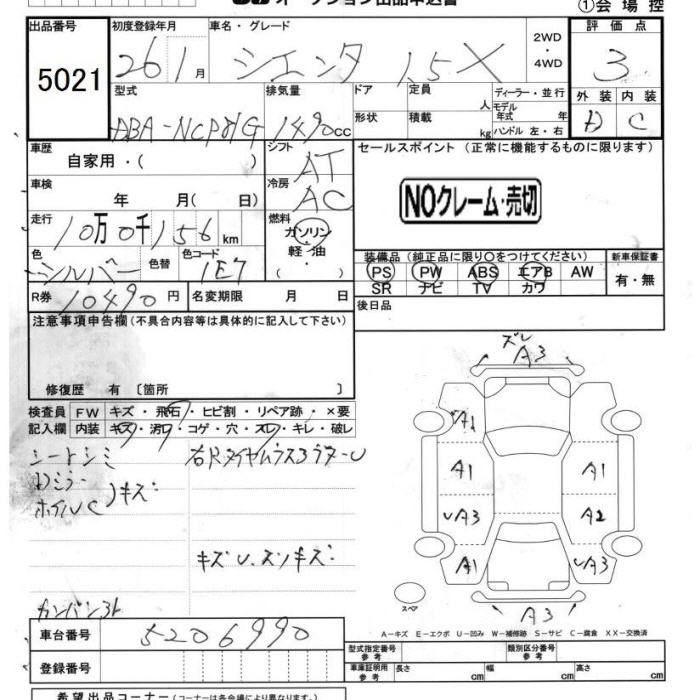 オークション出品申込書
①会場控
出品番号 初度登録年月 車名・グレード 2WD・4WD 評価点
5021 26 1月 シエンタ 1.5X 3
型式 排気量 ドア 定員 人 ディーラー・並行 外装 内装
ABA-NCP81G 1490cc 形状 積載 kg モデル年式 年 ハンドル 左・右 D C
車歴 自家用・( ) シフト AT セールスポイント (正常に機能するものに限ります)
車検 年 月( 日) 冷房 AC
NOクレーム・売切
走行 10万0千156km 燃料 ガソリン・軽・油・
装備品 (純正品に限り○をつけてください) 新車保証書
色 シルバー 色替 色コード 1E7 PS PW ABS エアB AW 有・無
SR ナビ TV カワ
R券 10490円 名変期限 月 日 後日品
注意事項申告欄 (不具合内容等は具体的に記入して下さい)
修復歴 有 〔箇所 〕
ズレ
A3
検査員 FW キズ・飛石・ヒビ割・リペア跡・×要
記入欄 内装 キズ・汚レ・コゲ・穴・スレ・キレ・破レ
A1
シートシミ
A1 A1
Dミラー
ホイルC キズ
UA3 A2
キズU.スリキズ
A1 UA3
カンバン3ト
スペア
A3
A-キズ E-エクボ U-凹み W-補修跡 S-サビ C-腐食 XX-交換済
車台番号 5206990
型式指定番号 参考 類別区分番号 参考
登録番号
車庫証明用 参考 長さ cm 幅 cm 高さ cm
希望出品コーナー (コーナーは各会場により異なります)